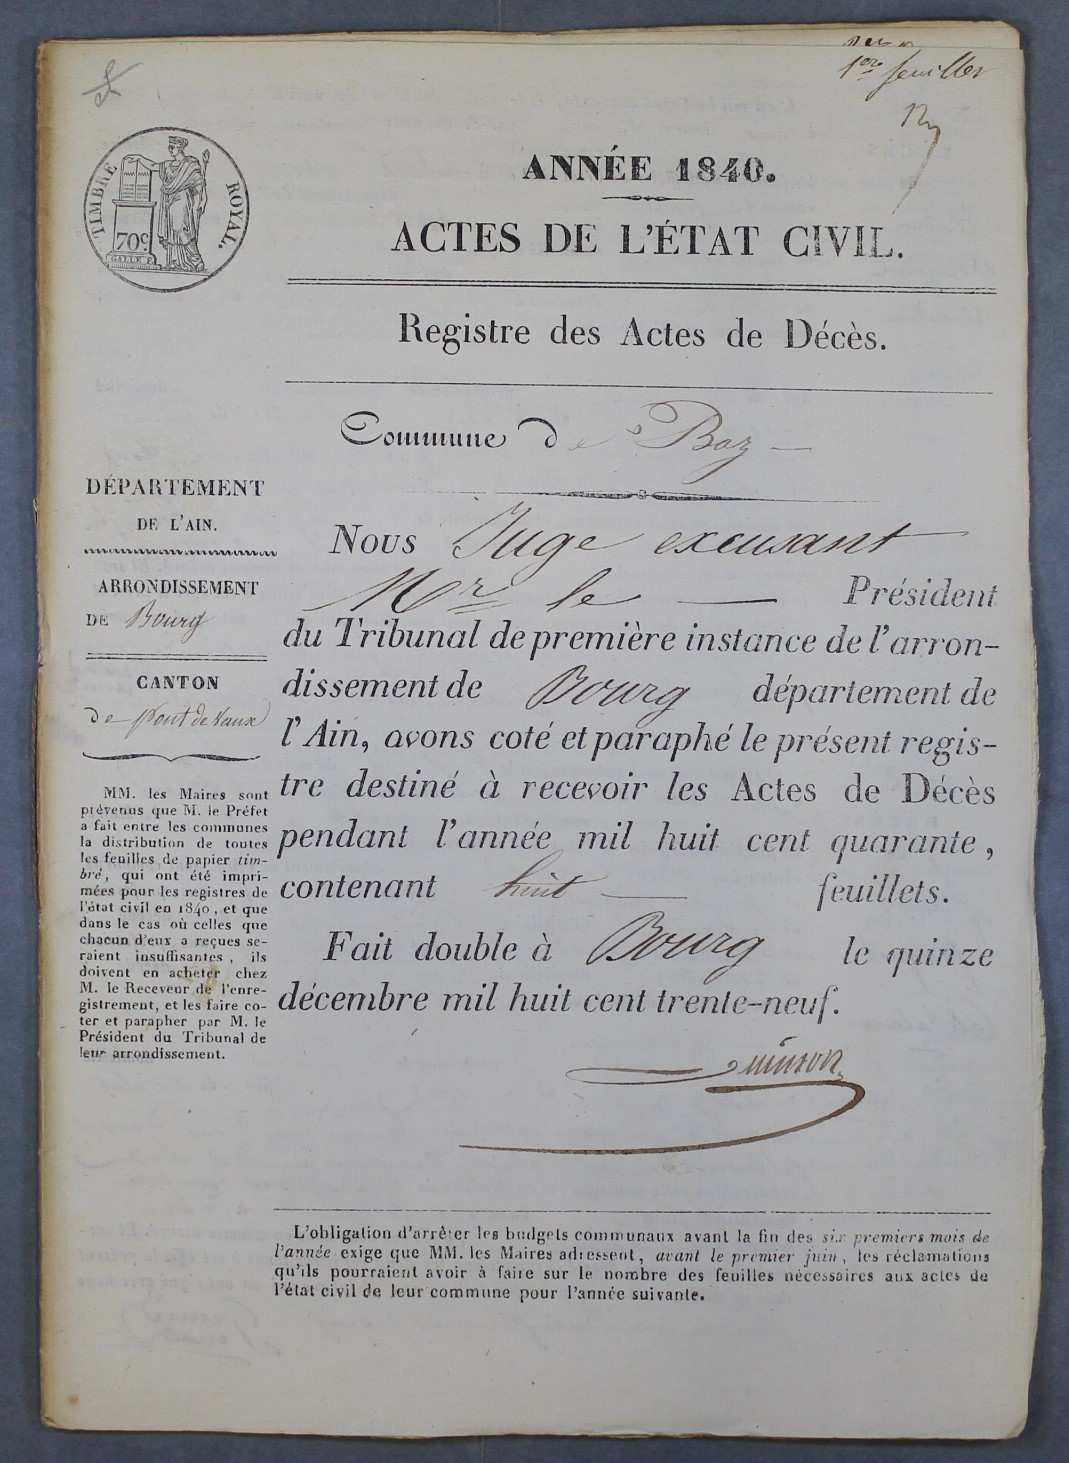 1er feuillet
ANNÉE 1840.
TIMBRE ROYAL.
70c.
ACTES DE L'ÉTAT CIVIL.
Registre des Actes de Décès.
Commune de Boz
DÉPARTEMENT
DE L'AIN.
ARRONDISSEMENT
DE Bourg
CANTON
de pont de Vaux
MM. les Maires sont
prévenus que M. le Préfet
a fait entre les communes
la distribution de toutes
les feuilles de papier tim-
bré, qui ont été impri-
mées pour les registres de
l'état civil en 1840, et que
dans le cas où celles que
chacun d'eux a reçues se-
raient insuffisantes, ils
doivent en acheter chez
M. le Receveur de l'enre-
gistrement, et les faire co-
ter et parapher par M. le
Président du Tribunal de
leur arrondissement.
Nous Juge excusant
Mr le Président
du Tribunal de première instance de l'arron-
dissement de Bourg département de
l'Ain, avons coté et paraphé le présent regis-
tre destiné à recevoir les Actes de Décès
pendant l'année mil huit cent quarante,
contenant huit feuillets.
Fait double à Bourg le quinze
décembre mil huit cent trente-neuf.
L'obligation d'arrêter les budgets communaux avant la fin des six premiers mois de
l'année exige que MM. les Maires adressent, avant le premier juin, les réclamations
qu'ils pourraient avoir à faire sur le nombre des feuilles nécessaires aux actes de
l'état civil de leur commune pour l'année suivante.